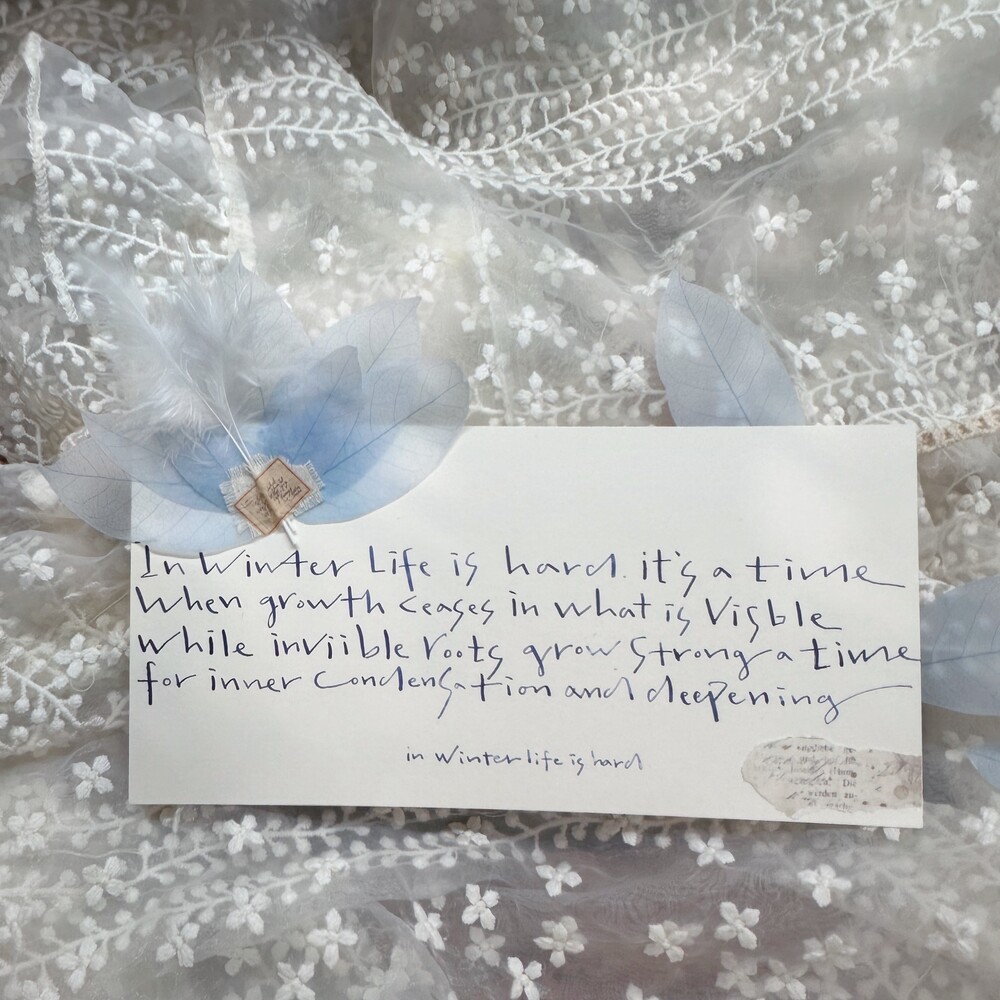 In Winter Life is hard. it's a time
When growth ceases in what is Visble
While inviible roots grow strong a time
for inner condensation and deepening
in winter life is hard
werden zu-